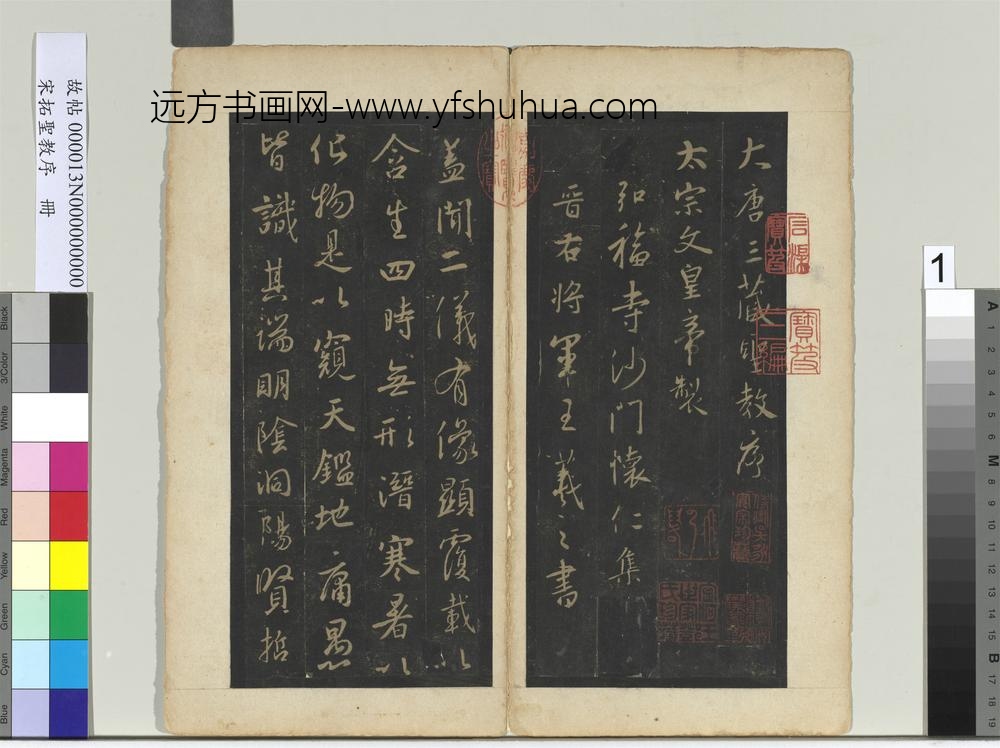 远方书画网-www.yfshuhua.com
故帖 000013N000000000
宋拓聖教序 冊
大唐三藏聖教序
太宗文皇帝製
弘福寺沙門懷仁集
晉右將軍王羲之書
蓋聞二儀有像顯覆載以
含生四時無形潛寒暑以
化物是以窺天鑑地庸愚
皆識其端明陰洞陽賢哲
1
Black
3/Color
White
Magenta
Red
Yellow
Green
Cyan
Blue
A
1
2
3
4
5
M
8
9
10
11
12
13
14
15
B
17
18
19